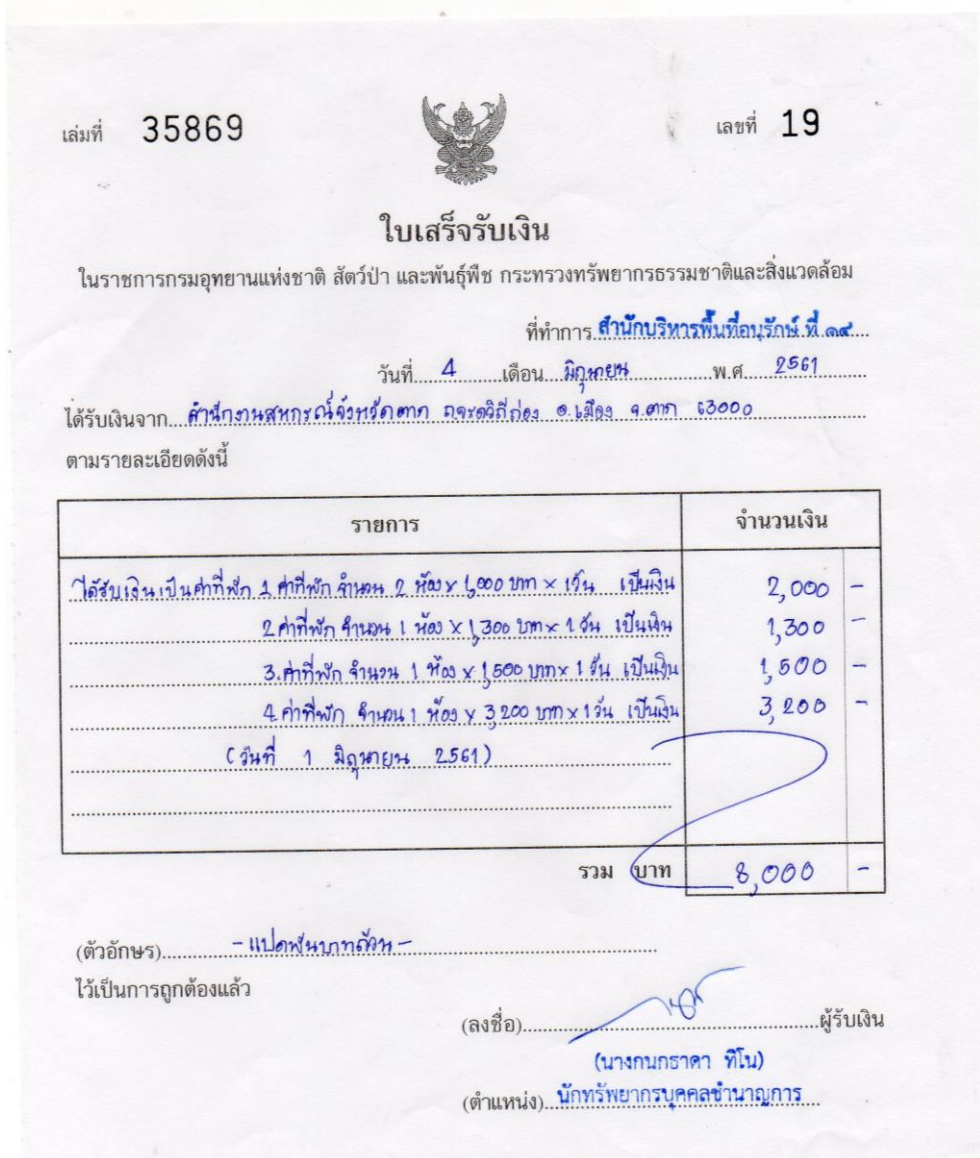 เล่มที่ 35869 เลขที่ 19
ใบเสร็จรับเงิน
ในราชการกรมอุทยานแห่งชาติ สัตว์ป่า และพันธุ์พืช กระทรวงทรัพยากรธรรมชาติและสิ่งแวดล้อม
ที่ทำการ สำนักบริหารพื้นที่อนุรักษ์ ที่ ๑๔
วันที่ 4 เดือน มิถุนายน พ.ศ. 2561
ได้รับเงินจาก สำนักงานสหกรณ์จังหวัดตาก ถ.จรดวิถีถ่อง อ.เมือง จ.ตาก 63000
ตามรายละเอียดดังนี้
รายการ จำนวนเงิน
ได้รับเงินเป็นค่าที่พัก 1 ค่าที่พัก จำนวน 2 ห้อง x 1,000 บาท x 1วัน เป็นเงิน 2,000 -
2 ค่าที่พัก จำนวน 1 ห้อง x 1,300 บาท x 1 วัน เป็นเงิน 1,300 -
3. ค่าที่พัก จำนวน 1 ห้อง x 1,500 บาท x 1 วัน เป็นเงิน 1,500 -
4. ค่าที่พัก จำนวน 1 ห้อง x 3,200 บาท x 1วัน เป็นเงิน 3,200 -
(วันที่ 1 มิถุนายน 2561)
รวม บาท 8,000 -
(ตัวอักษร) - แปดพันบาทถ้วน -
ไว้เป็นการถูกต้องแล้ว
(ลงชื่อ) ผู้รับเงิน
(นางกนกธาดา ทิโน)
(ตำแหน่ง) นักทรัพยากรบุคคลชำนาญการ